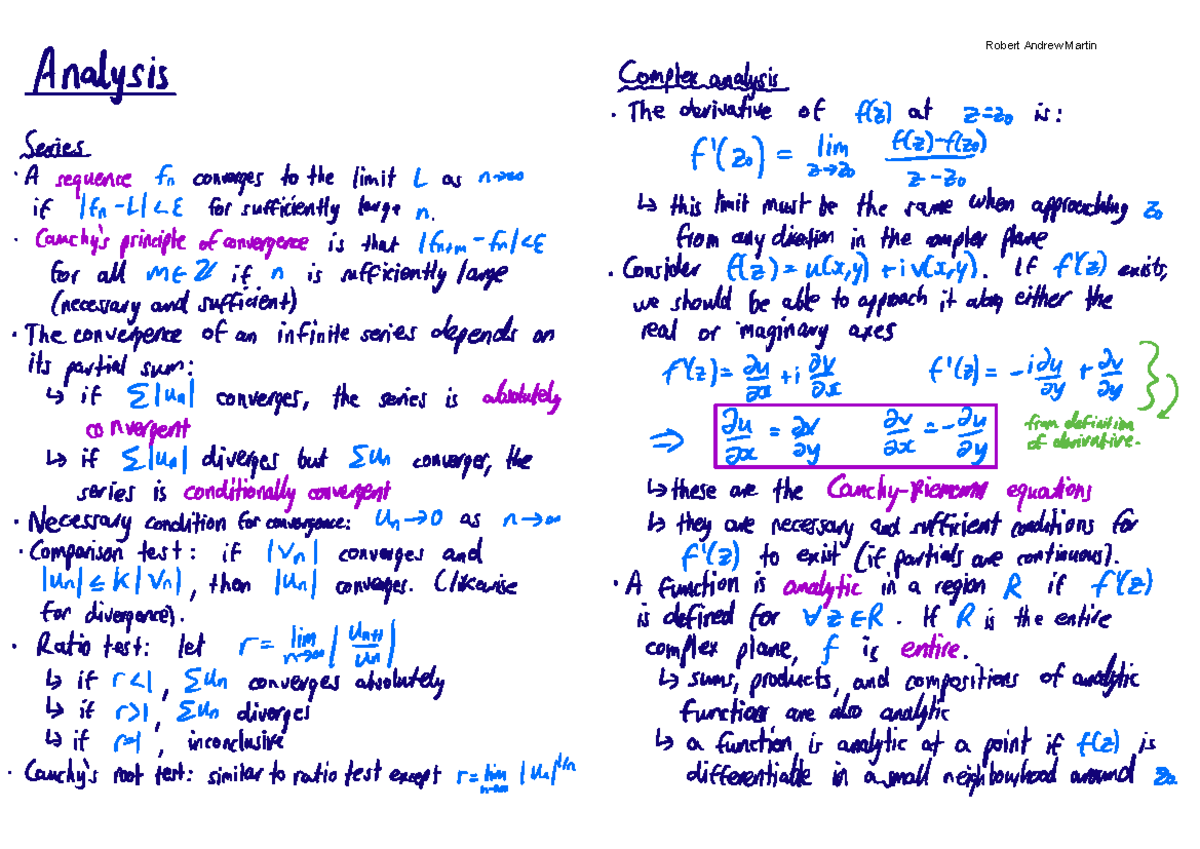 Robert Andrew Martin
Analysis
Series
· A sequence fₙ converges to the limit L as n→∞
if |fₙ - L| < ε for sufficiently large n.
· Cauchy's principle of convergence is that |fₙ₊ₘ - fₙ| < ε
for all m ∈ ℤ if n is sufficiently large
(necessary and sufficient)
· The convergence of an infinite series depends on
its partial sum:
↳ if Σ|uₙ| converges, the series is absolutely
convergent
↳ if Σ|uₙ| diverges but Σuₙ converges, the
series is conditionally convergent
· Necessary condition for convergence: uₙ→0 as n→∞
· Comparison test: if |vₙ| converges and
|uₙ| ≤ K|vₙ|, then |uₙ| converges. (likewise
for divergence).
· Ratio test: let r = lim n→∞ |uₙ₊₁/uₙ|
↳ if r<1, Σuₙ converges absolutely
↳ if r>1, Σuₙ diverges
↳ if r=1, inconclusive
· Cauchy's root test: similar to ratio test except r = lim n→∞ |uₙ|^1/n
Complex analysis
· The derivative of f(z) at z=z₀ is:
f'(z₀) = lim z→z₀ (f(z)-f(z₀))/(z-z₀)
↳ this limit must be the same when approaching z₀
from any direction in the complex plane
· Consider f(z) = u(x,y) + iv(x,y). If f'(z) exists,
we should be able to approach it along either the
real or imaginary axes
f'(z) = ∂u/∂x + i ∂v/∂x f'(z) = -i ∂u/∂y + ∂v/∂y
⇒ ∂u/∂x = ∂v/∂y ∂v/∂x = -∂u/∂y
from definition
of derivative.
↳ these are the Cauchy-Riemann equations
↳ they are necessary and sufficient conditions for
f'(z) to exist (if partials are continuous).
· A function is analytic in a region R if f'(z)
is defined for ∀z∈R. If R is the entire
complex plane, f is entire.
↳ sums, products, and compositions of analytic
functions are also analytic
↳ a function is analytic at a point if f(z) is
differentiable in a small neighbourhood around z₀